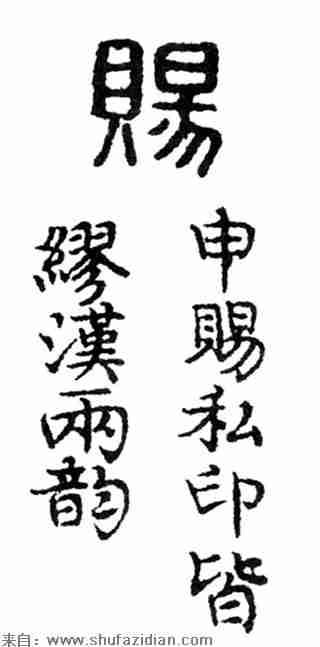 賜
申賜私印皆
繆漢兩韵
来自：www.shufazidian.com